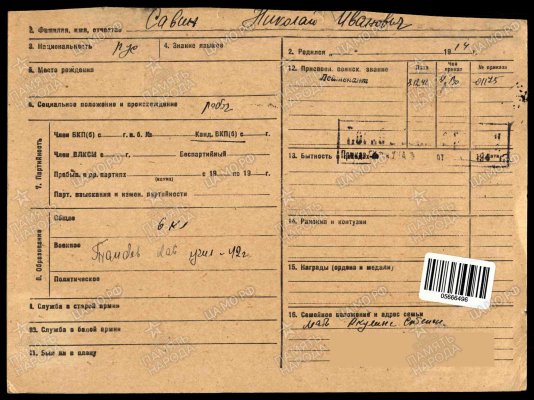 1. Фамилия, имя, отчество Савин Николай Иванович
3. Национальность
4. Знание языков
5. Место рождения
6. Социальное положение и происхождение рабоч
7. Партийность
Член ВКП(б) с г. п. б. № Канд. ВКП(б) с г.
Член ВЛКСМ с г. Беспартийный
Пребыв. в др. партиях с 19 по 19 г.
Парт. взыскания и измен. партийности
8. Образование
Общее 6 кл
Военное Тамбов. кав училищ - 42 г.
Политическое
9. Служба в старой армии
10. Служба в белой армии
11. Был ли в плену
2. Родился 1914 г.
12. Присвоен. воинск. звание
Дата
Чей приказ
№ приказа
Лейтенант
01175
13. Бытность
14. Ранения и контузии
15. Награды (ордена и медали)
05666496
16. Семейное положение и адрес семьи
ПАМЯТЬ НАРОДА
ЦАМО.РФ